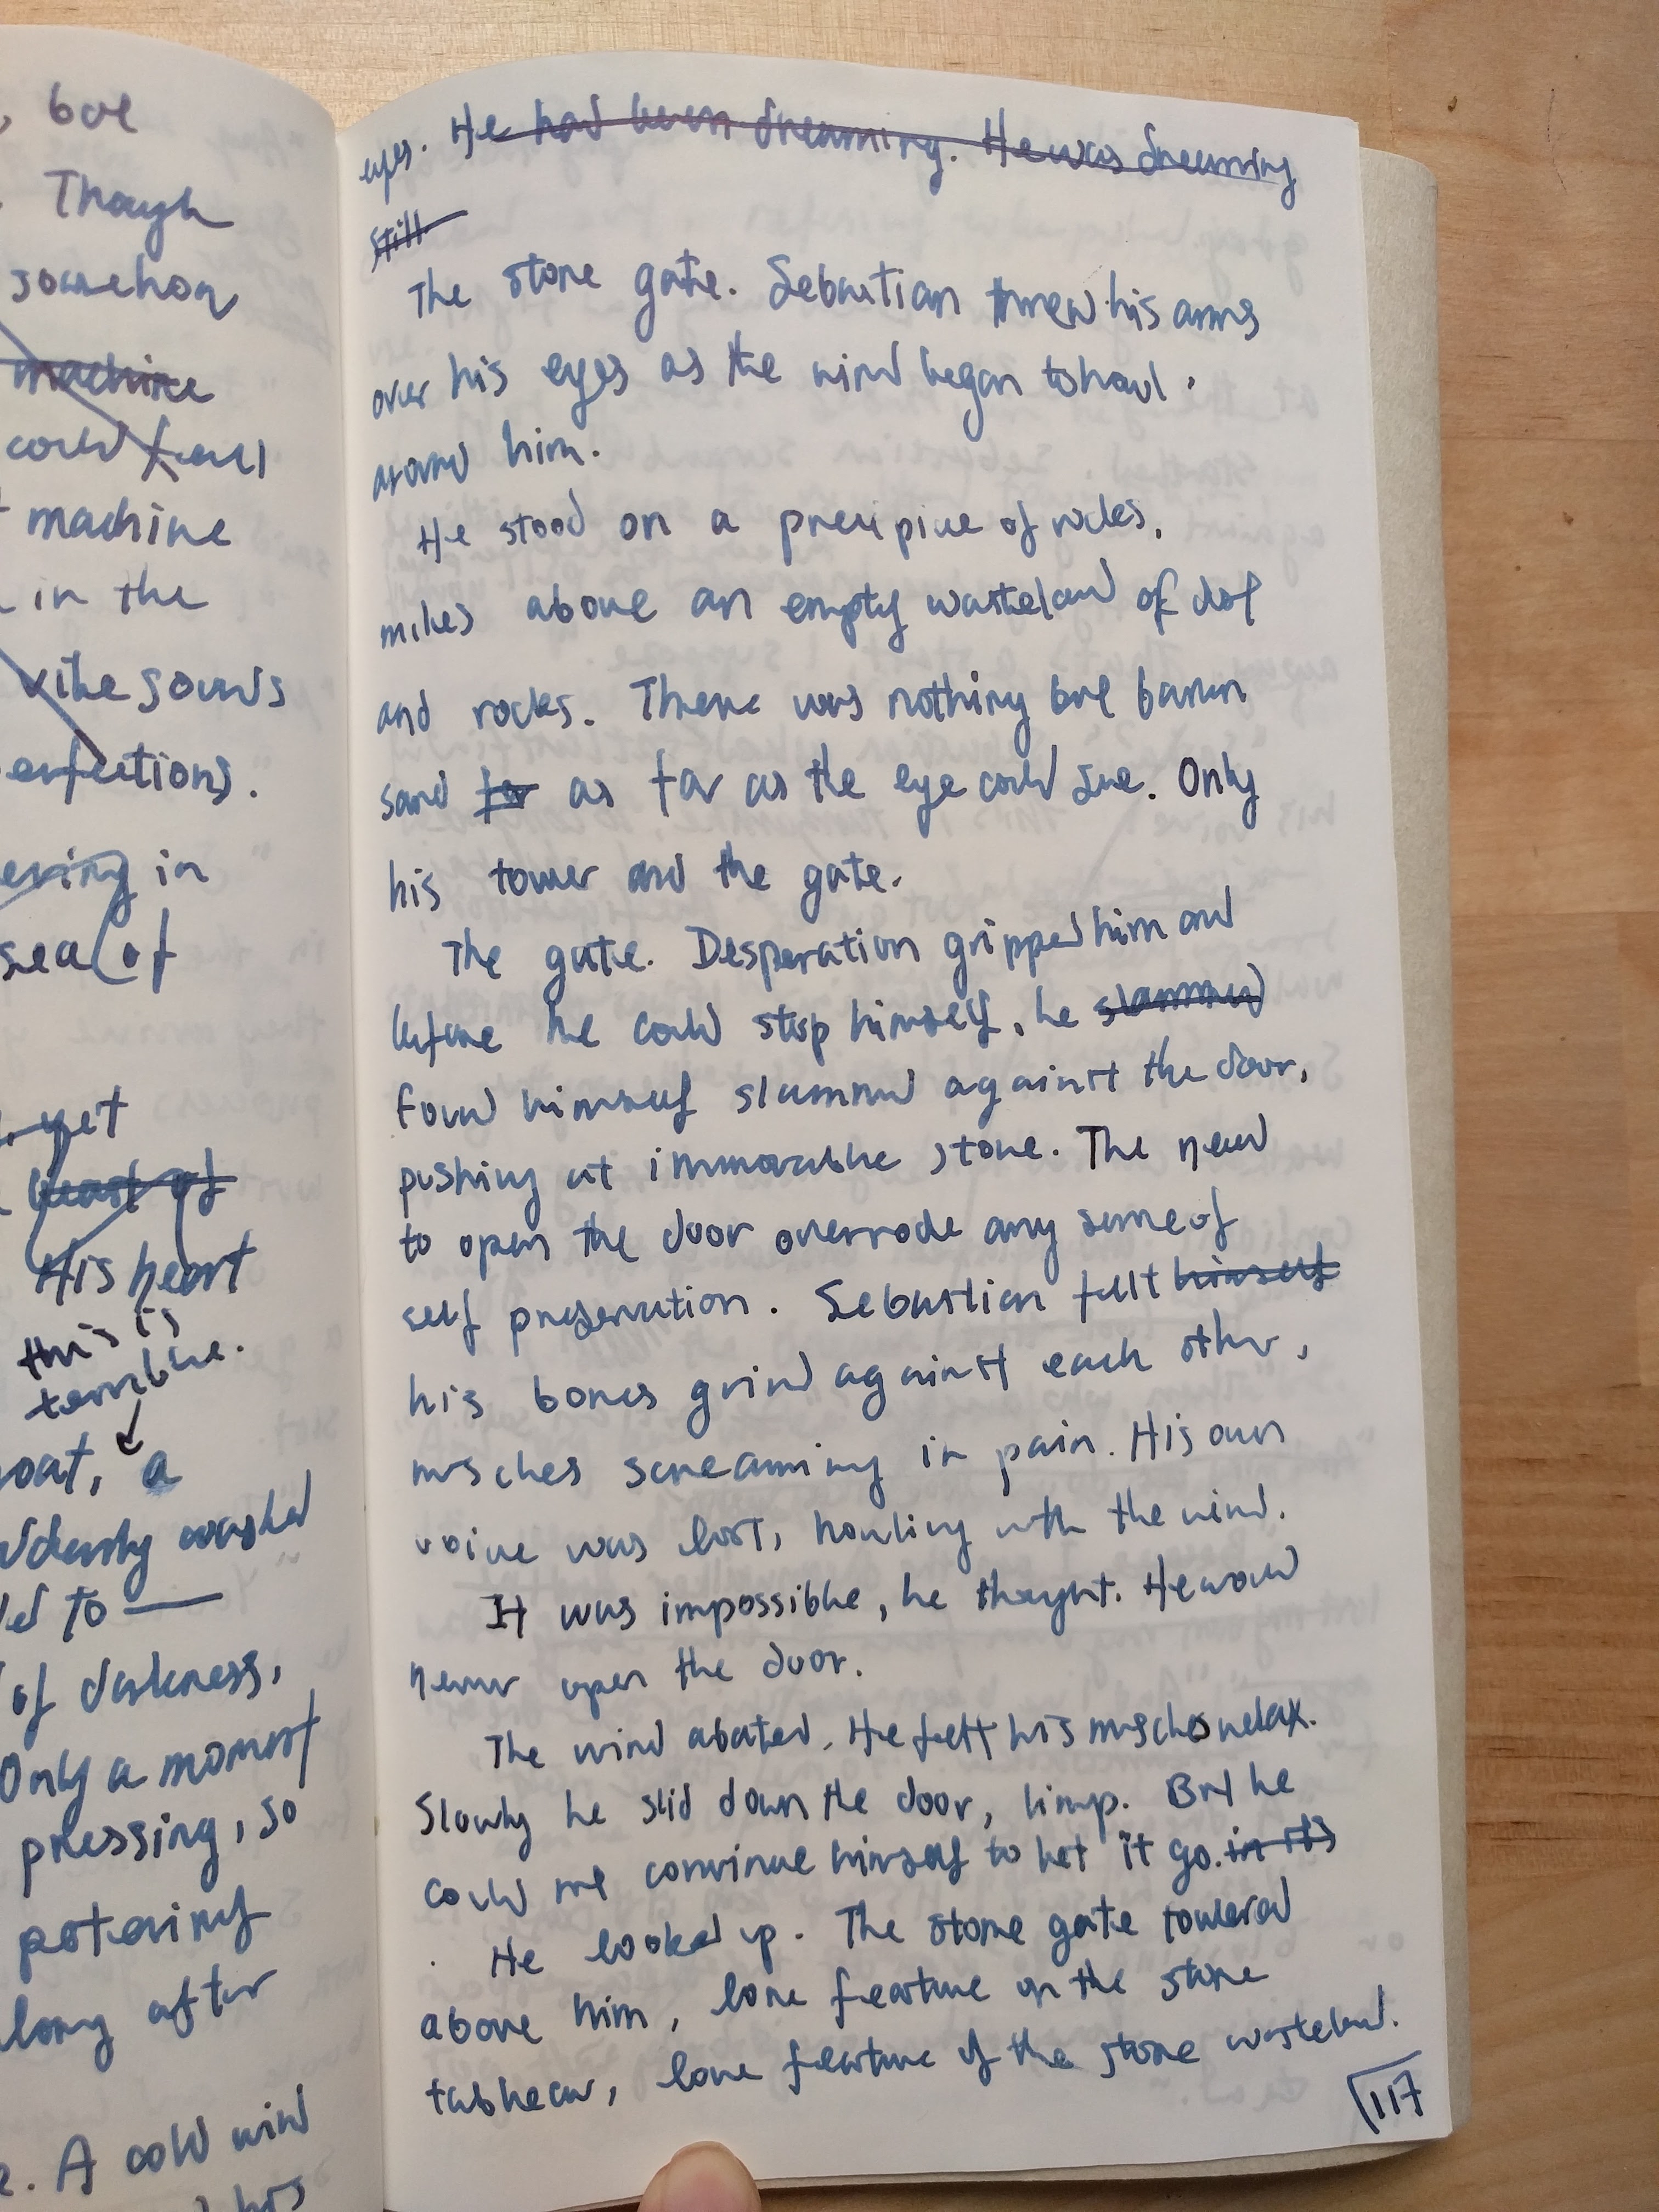 , but
Though
somehow
machine
could feel
machine
in the
like sounds
erfections.
ering in
sea of
yet
heart of
His heart
this is
terrible.
oat, a
washed
ed to —
of darkness,
Only a moment
pressing, so
long after
e. A cold wind
his
eyes. He had been dreaming. He was dreaming
still
The stone gate. Sebastian threw his arms
over his eyes as the wind began to howl
around him.
He stood on a precipice of rocks,
miles above an empty wasteland of dust
and rocks. There was nothing but barren
sand far as far as the eye could see. Only
his tower and the gate.
The gate. Desperation gripped him and
before he could stop himself, he slammed
found himself slammed against the door,
pushing at immovable stone. The need
to open the door overrode any sense of
self preservation. Sebastian felt himself
his bones grind against each other,
muscles screaming in pain. His own
voice was lost, howling with the wind.
It was impossible, he thought. He would
never open the door.
The wind abated. He felt his muscles relax.
Slowly he slid down the door, limp. But he
could not convince himself to let it go. in its
He looked up. The stone gate towered
above him, lone feature on the stone
tableau, lone feature of the stone wasteland.
117